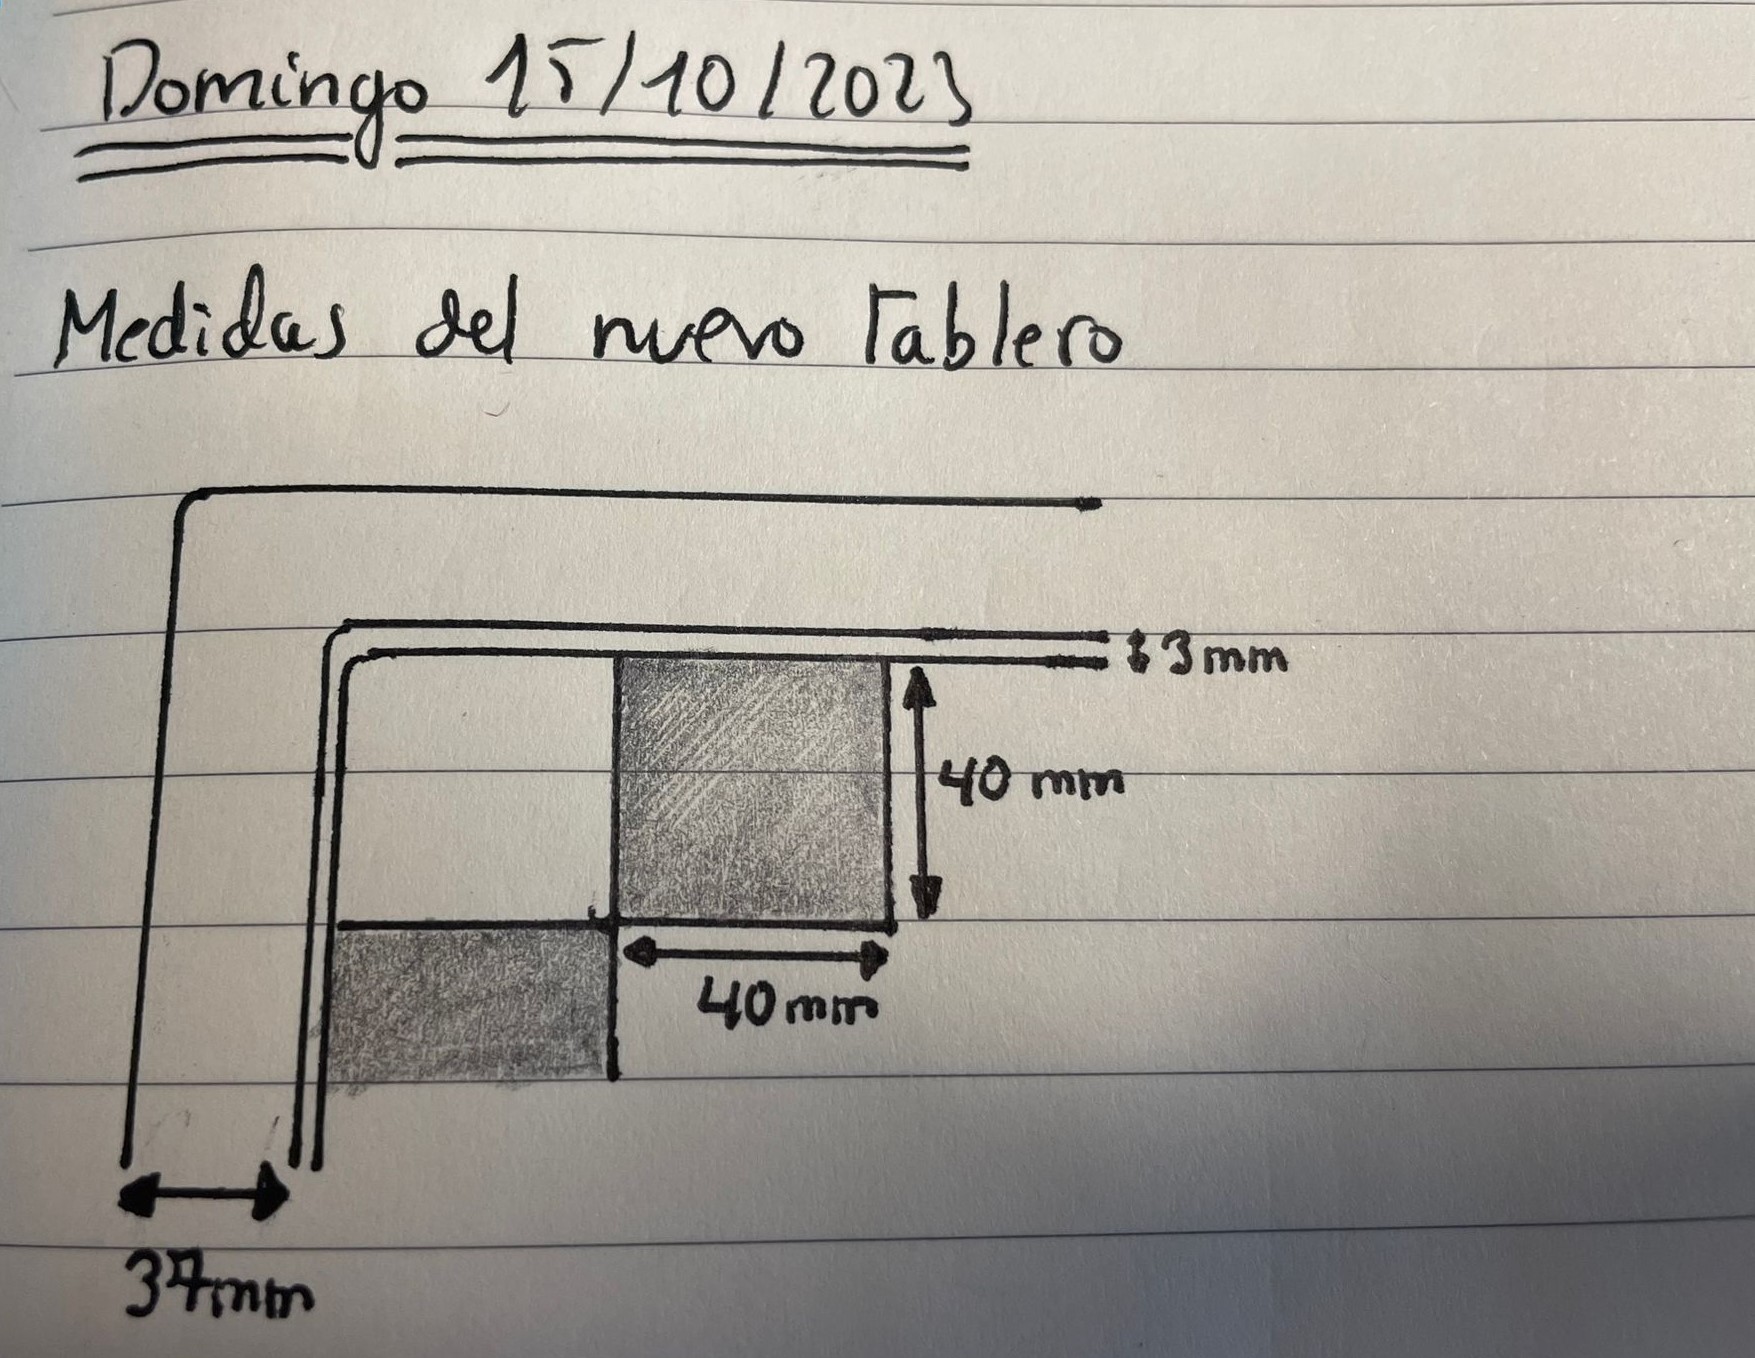 Domingo 15/10/2023
Medidas del nuevo Tablero
3mm
40 mm
40mm
37mm